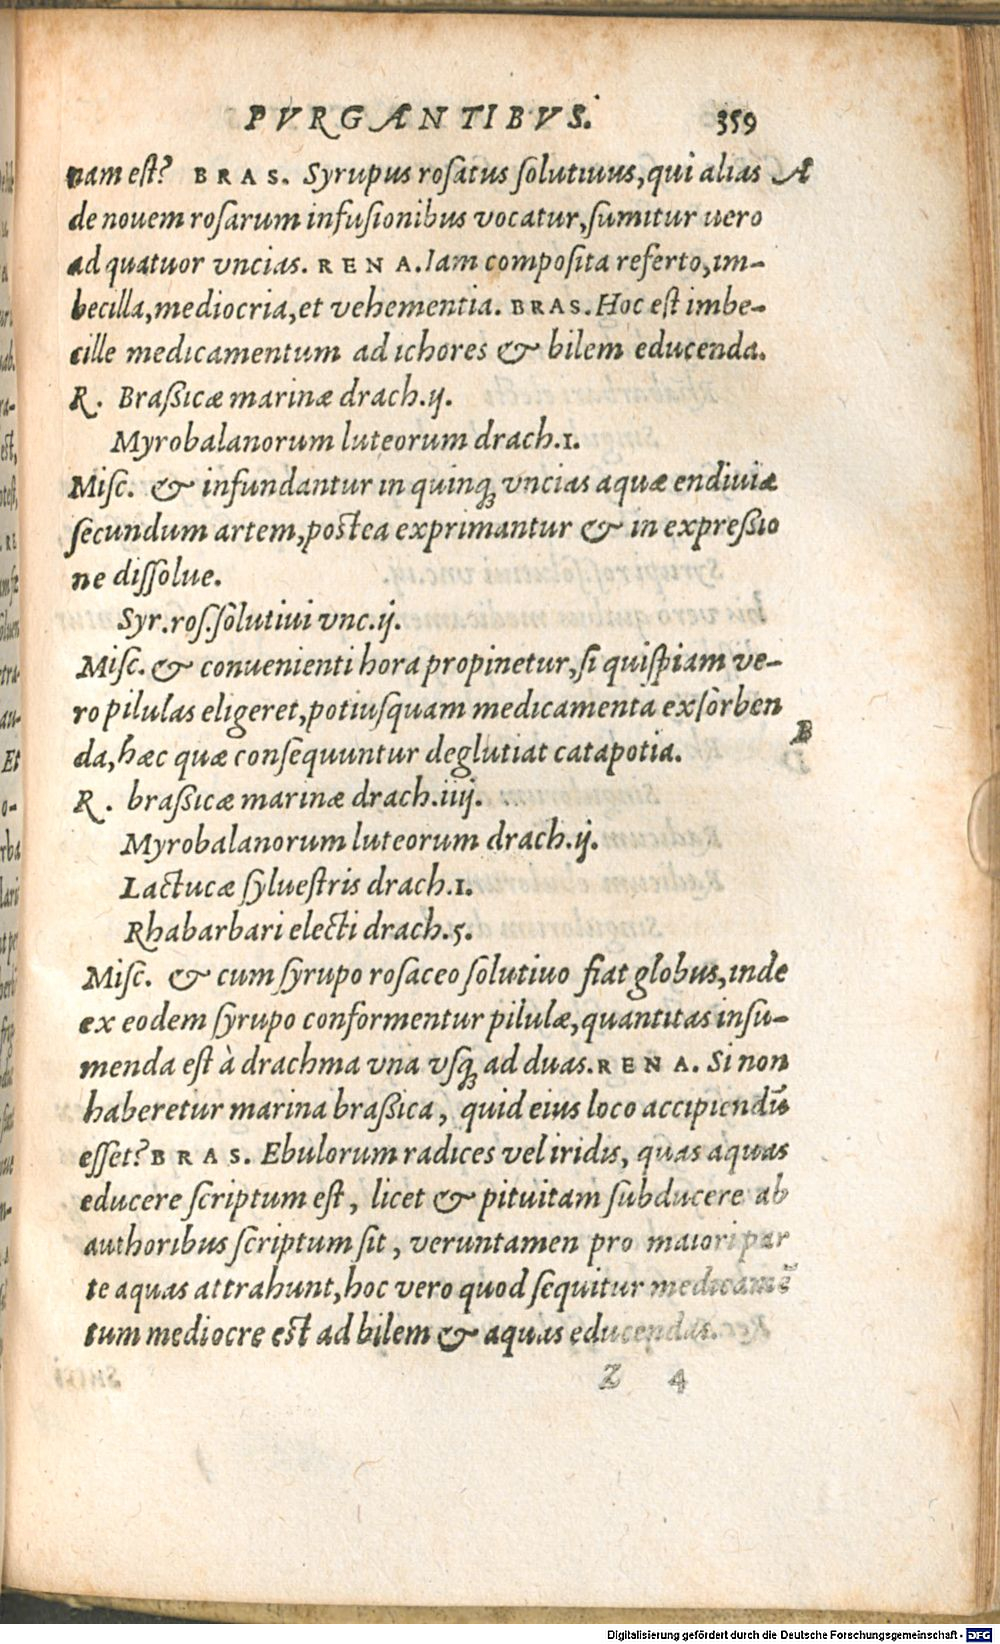 PVRGANTIBVS. 359
nam est? BRAS. Syrupus rosatus solutiuus, qui alias A
de nouem rosarum infusionibus vocatur, sumitur uero
ad quatuor vncias. RENA. Iam composita referto, im-
becilla, mediocria, et vehementia. BRAS. Hoc est imbe-
cille medicamentum ad ichores & bilem educenda.
R. Braßicæ marinæ drach. ij.
Myrobalanorum luteorum drach. 1.
Misc. & infundantur in quinq; vncias aquæ endiuiæ
secundum artem, postea exprimantur & in expreßio
ne dissolue.
Syr. ros. solutiui vnc. ij.
Misc. & conuenienti hora propinetur, si quispiam ve-
ro pilulas eligeret, potiusquam medicamenta exsorben
da, hæc quæ consequuntur deglutiat catapotia. B
R. braßicæ marinæ drach. iiij.
Myrobalanorum luteorum drach. ij.
Lactucæ syluestris drach. 1.
Rhabarbari electi drach. 5.
Misc. & cum syrupo rosaceo solutiuo fiat globus, inde
ex eodem syrupo conformentur pilulæ, quantitas insu-
menda est à drachma vna vsq; ad duas. RENA. Si non
haberetur marina braßica, quid eius loco accipiendũ
esset? BRAS. Ebulorum radices vel iridis, quas aquas
educere scriptum est, licet & pituitam subducere ab
authoribus scriptum sit, veruntamen pro maiori par
te aquas attrahunt, hoc vero quod sequitur medicamẽ
tum mediocre est ad bilem & aquas educendas.
Z 4
Digitalisierung gefördert durch die Deutsche Forschungsgemeinschaft - DFG